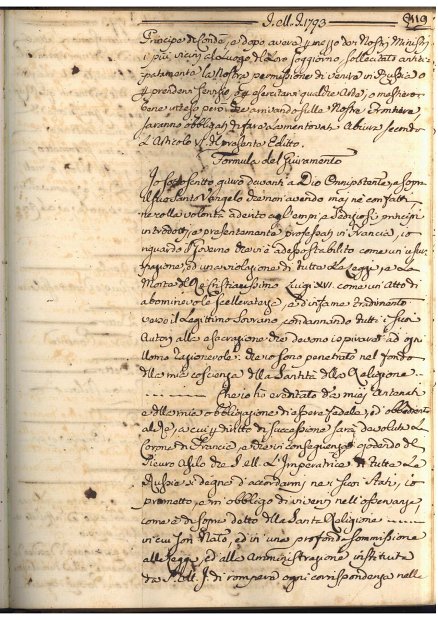 J. ell. J. 1793
Principe di Condè, e dopo avere p mezzo dei Nostri Ministri
i più vicini al luogo del loro soggiorno, sollecitata antici-
patamente la Nostra permissione di venire in Russia o
p prendere servizio o p esercitare qualche Arte, o mestiere
bene inteso però che arrivando sulle Nostre Frontiere
saranno obbligati di fare la mentovata Abiura secondo
L'Articolo del presente Editto.
Formula del Giuramento
Io sottoscritto giuro davanti a Dio Onnipotente, e sopra
il suo Santo Vangelo che non avendo mai nè con fatti,
nè colla volontà aderito agl'empi, e sediziosi principi
introdotti, e presentemente professati in Francia, io
riguardo il Governo che vi è adesso stabilito come un'usur-
pazione, ed una violazione di tutte le Leggi, e la
Morte del Re Cristianissimo Luigi XVI. come un Atto di
abominevole scelleratezza, e d'infame tradimento
verso il Legittimo Sovrano condannando tutti i suoi
Autori alla esecrazione che devono ispirare ad ogni
Uomo ragionevole: che io sono penetrato nel fondo
della mia coscienza della Santità della Religione
Che io ho ereditato da' miei Antenati
e della mia obbligazione di essere fedele, ed obbediente
al Re, a cui p diritto di successione sarà devoluta La
Corona di Francia, e che in conseguenza godendo del
sicuro Asilo che S. ell. L'Imperatrice di tutte Le
Russie si degna di accordarmi ne' suoi Stati, io
prometto, e mi obbligo di vivervi nell'osservanza,
come è di sopra detto della Santa Religione
in cui son Nato, ed in una profonda sommissione
alle Leggi, ed alla Amministrazione instituita
da S. ell. J. di rompere ogni corrispondenza nelle